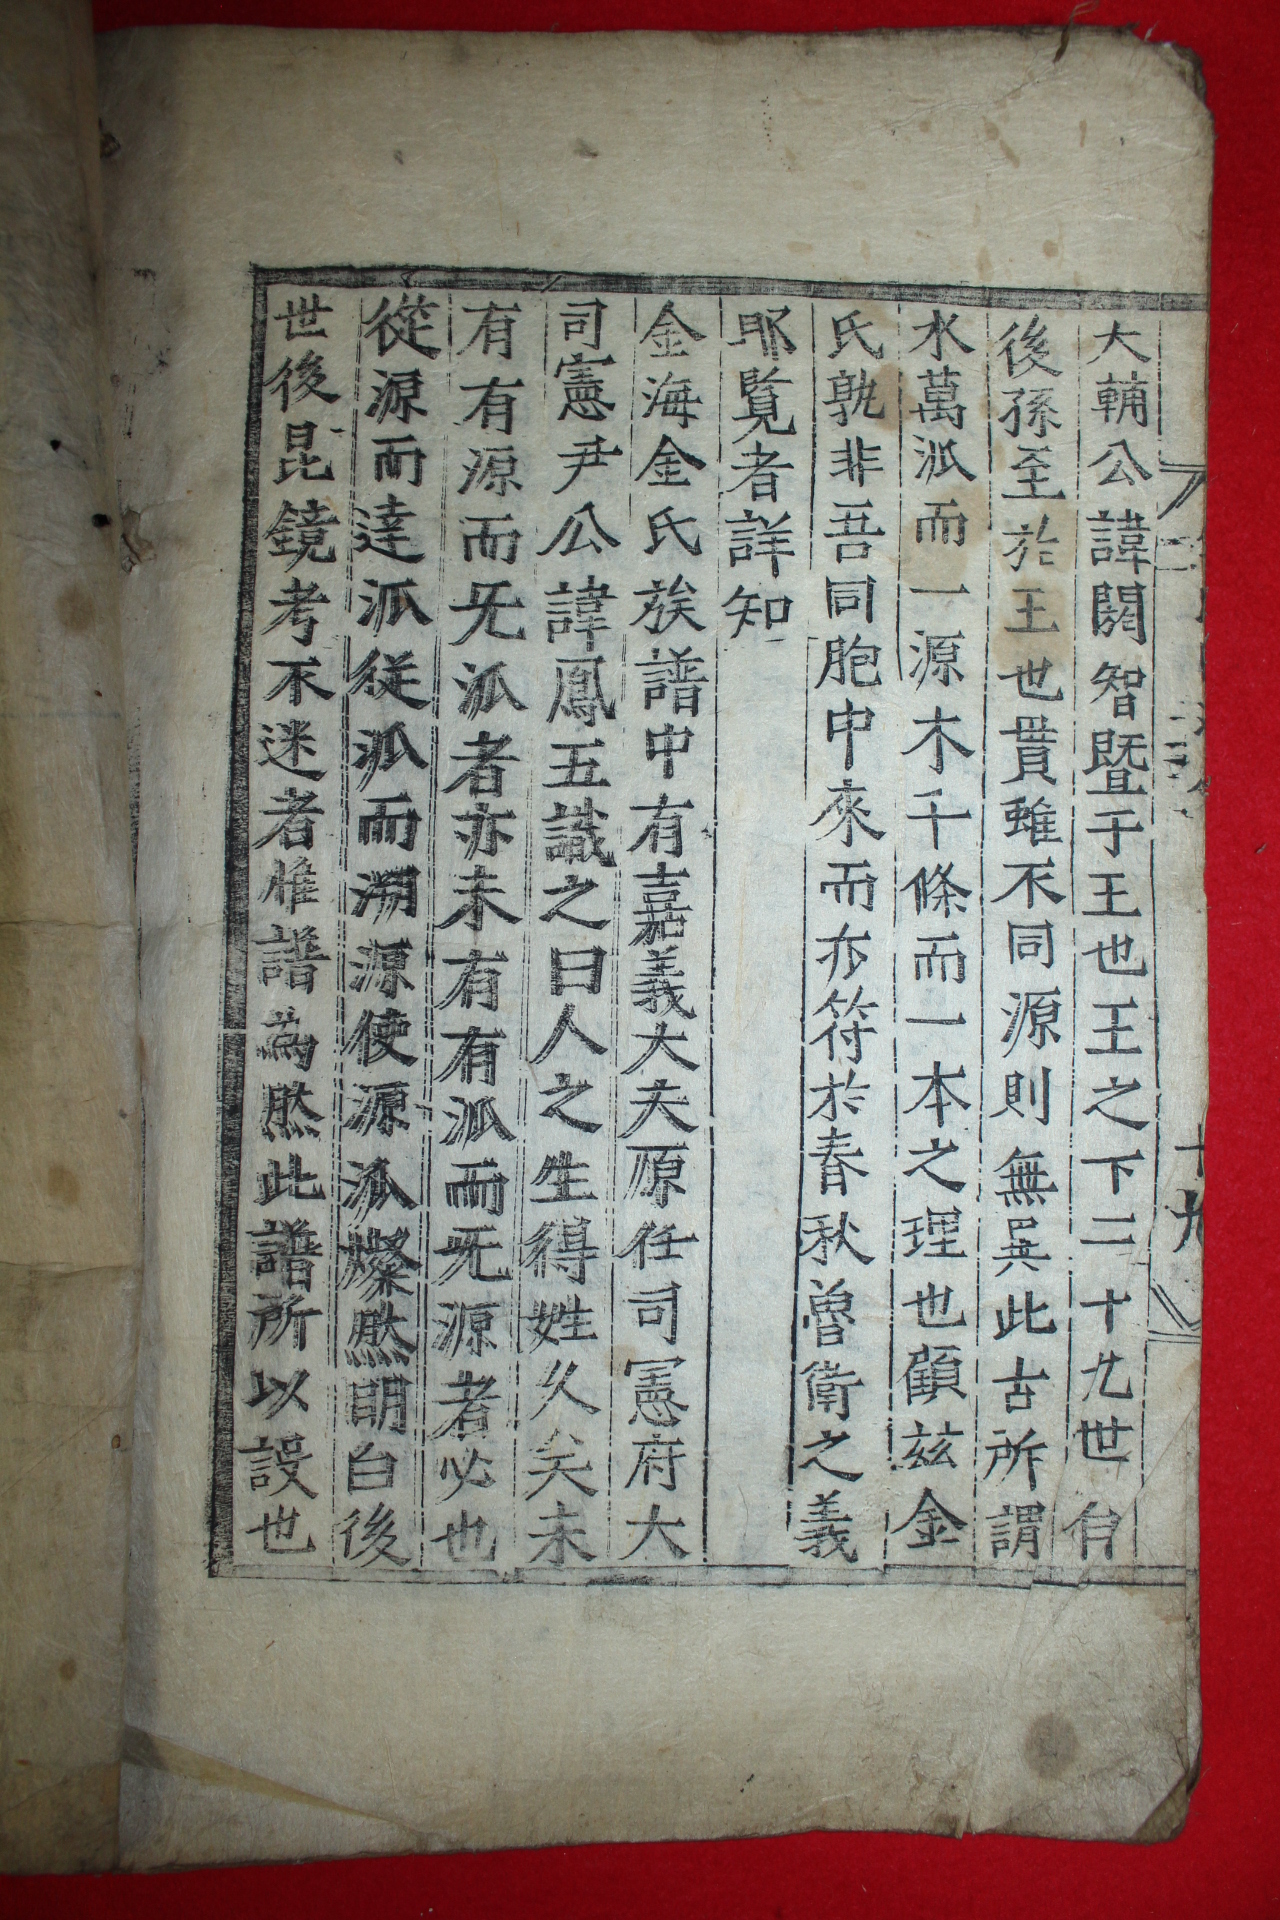 十九
大輔公諱閼智暨于王也王之下二十九世自
後孫至於王也貫雖不同源則無異此古所謂
水萬派而一源木千條而一本之理也顧玆金
氏孰非吾同胞中來而亦符於春秋魯衛之義
耶覽者詳知
金海金氏族譜中有嘉義大夫原任司憲府大
司憲尹公諱鳳五識之曰人之生得姓久矣未
有有源而旡派者亦未有有派而旡源者必也
從源而達派從派而溯源使源派燦然明白後
世後昆鏡考不迷者惟譜為然此譜所以設也